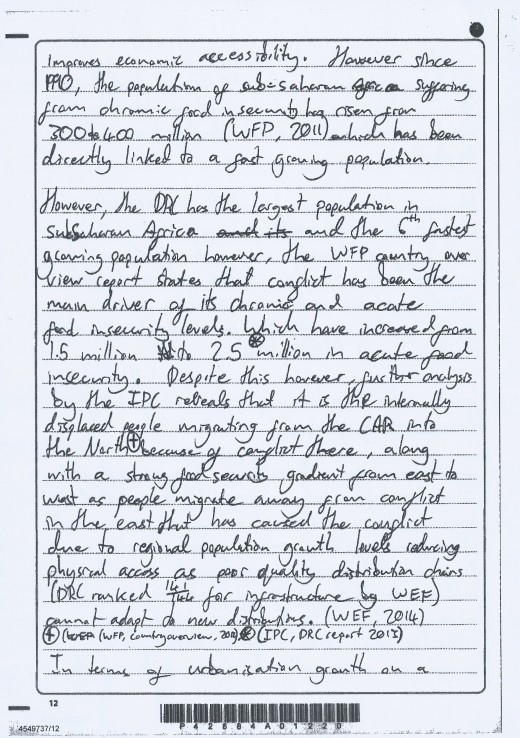 improves economic accessibility. However since
1990, the population of sub-saharan Africa suffering
from chronic food insecurity has risen from
300 to 400 million (WFP, 2011) which has been
directly linked to a fast growing population.
However, the DRC has the largest population in
Subsaharan Africa and its and the 6th fastest
growing population however, the WFP country over
view report states that conflict has been the
main driver of its chronic and acute
food insecurity levels. Which have increased from
1.5 million to 2.5 ⊗ million in acute food
insecurity. Despite this however, further analysis
by the IPC reveals that it is the internally
displaced people migrating from the CAR into
the North ⊕ because of conflict there, along
with a strong food security gradient from east to
west as people migrate away from conflict
in the east that has caused the conflict
due to regional population growth levels reducing
physical access as poor quality distribution chains
(DRC ranked 141/144 for infrastructure by WEF)
cannot adapt to new distributions. (WEF, 2014)
⊕ (WFP, country overview, ⊗ (IPC, DRC report 2013)
In terms of urbanisation growth on a
12
4549737/12
P42684A01220